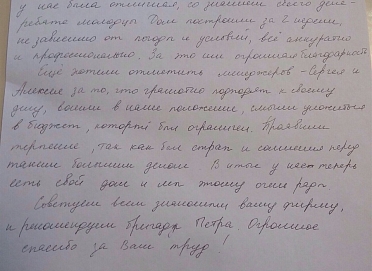 у нас была отличная, со знанием своего дела -
ребята молодцы. Дом построили за 2 недели,
не зависимо от погоды и условий, всё аккуратно
и профессионально. За это им громадная благодарность.
Ещё хотели отметить менеджеров - Сергея и
Алексея за то, что грамотно подходят к своему
делу, вошли в наше положение, смогли уложиться
в бюджет, который был ограничен. Проявили
терпение, так как был страх и сомнения перед
таким большим делом. В итоге у нас теперь
есть свой дом и мы этому очень рады.
Советуем всем знакомым вашу фирму,
и рекомендуем бригаду Петра. Огромное
спасибо за Ваш труд!